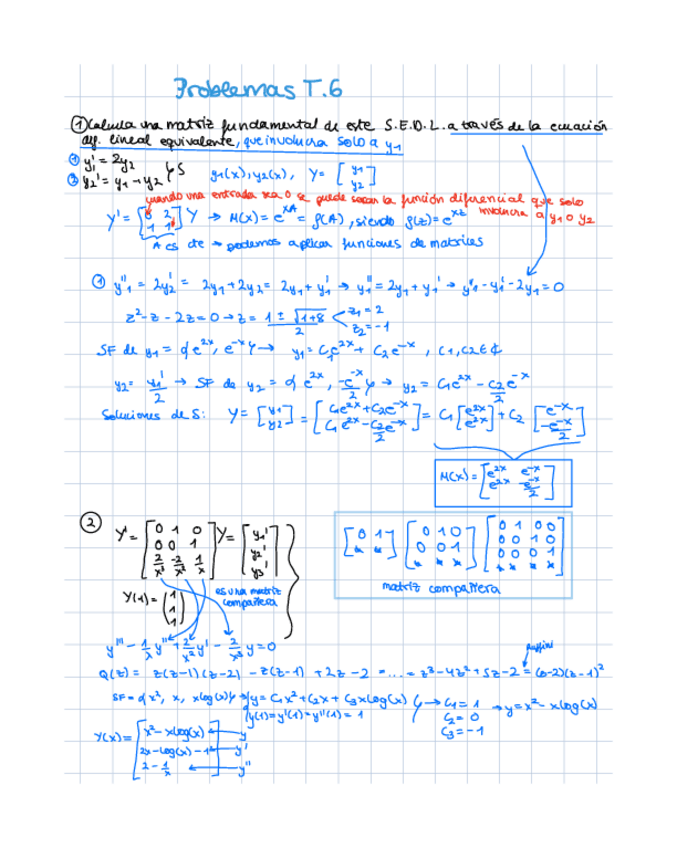 Problemas T.6
① Calcula una matriz fundamental de este S.E.D.L. a través de la ecuación
dif. lineal equivalente, que involucra SOLO a y₁
① y₁' = 2y₂
② y₂' = y₁ + y₂ } S y₁(x), y₂(x), Y = [y₁ y₂]
cuando una entrada sea 0 se puede sacar la función diferencial que solo
involucra a y₁ o y₂
Y' = [0 2; 1 1] Y → M(x) = e^{xA} = f(A), siendo f(z) = e^{xz}
A es cte → podemos aplicar funciones de matrices
① y₁'' = 2y₂' = 2y₁ + 2y₂ = 2y₁ + y₁' → y₁'' = 2y₁ + y₁' → y₁'' - y₁' - 2y₁ = 0
z² - z - 2z = 0 → z = (1 ± √(1+8))/2 < z₁ = 2 z₂ = -1
SF de y₁ = {e^{2x}, e^{-x}} → y₁ = C₁e^{2x} + C₂e^{-x}, C₁, C₂ ∈ ℂ
y₂ = y₁'/2 → SF de y₂ = {e^{2x}, -e^{-x}/2} → y₂ = C₁e^{2x} - C₂e^{-x}/2
Soluciones de S: Y = [y₁; y₂] = [C₁e^{2x} + C₂e^{-x}; C₁e^{2x} - C₂e^{-x}/2] = C₁ [e^{2x}; e^{2x}] + C₂ [e^{-x}; -e^{-x}/2]
M(x) = [e^{2x} e^{-x}; e^{2x} -e^{-x}/2]
② Y' = [0 1 0; 0 0 1; 2/x³ -2/x² 1/x] Y = [y₁'; y₂'; y₃']
[0 1; * *] [0 1 0; 0 0 1; * * *] [0 1 0 0; 0 0 1 0; 0 0 0 1; * * * *]
matriz compañera
Y(1) = (1; 1; 1)
es una matriz
compañera
y''' - 1/x y'' + 2/x² y' - 2/x³ y = 0
Ruffini
Q(z) = z(z-1)(z-2) - z(z-1) + 2z - 2 = ... = z³ - 4z² + 5z - 2 = (z-2)(z-1)²
SF = {x², x, xlog(x)} → {y = C₁x² + C₂x + C₃xlog(x) } → C₁ = 1 → y = x² - xlog(x)
y(1) = y'(1) = y''(1) = 1 C₂ = 0
C₃ = -1
Y(x) = [x² - xlog(x) ← y
2x - log(x) - 1 ← y'
2 - 1/x ← y'']